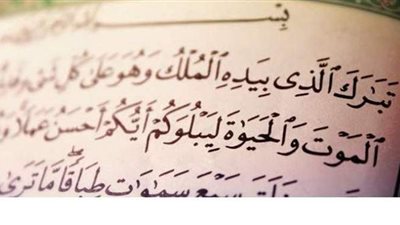 بِسْـ
تَبَٰرَكَ ٱلَّذِى بِيَدِهِ ٱلْمُلْكُ وَهُوَ عَلَىٰ كُلِّ شَىْءٍ
ٱلْمَوْتَ وَٱلْحَيَوٰةَ لِيَبْلُوَكُمْ أَيُّكُمْ أَحْسَنُ عَمَلًا وَ
سَبْعَ سَمَٰوَٰتٍ طِبَاقًا مَّا تَرَىٰ